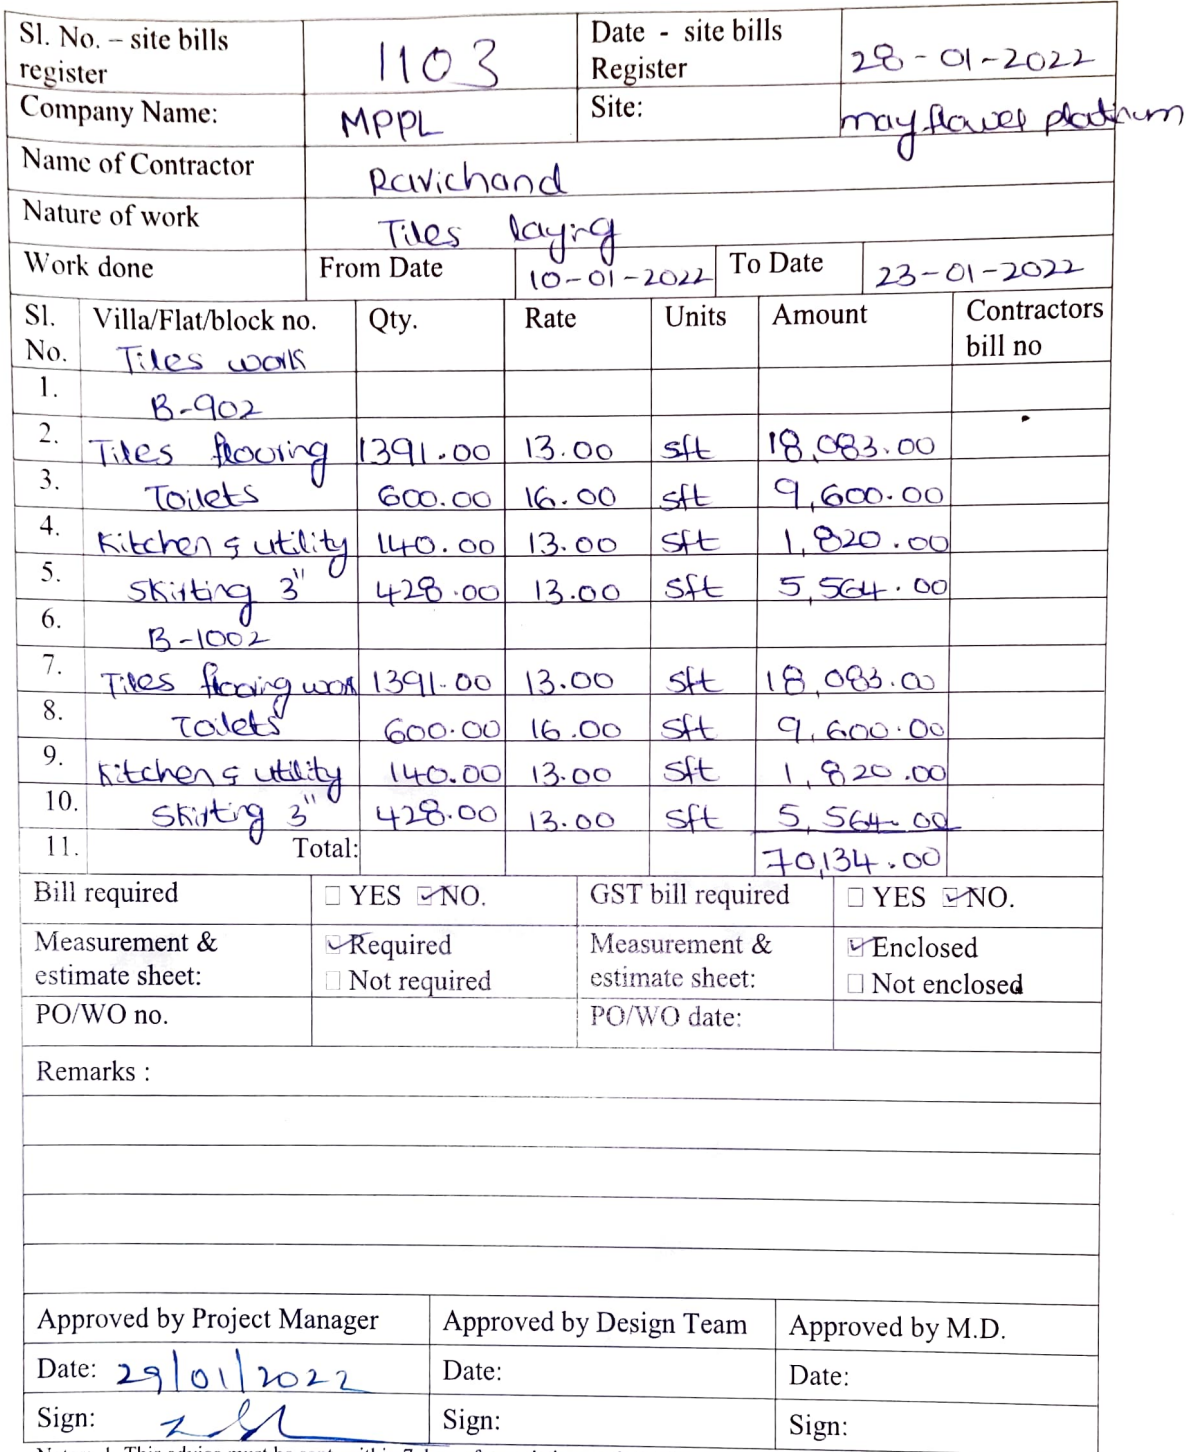 Sl. No. – site bills register 1103 Date - site bills Register 28-01-2022
Company Name: MPPL Site: mayflower platinum
Name of Contractor Ravichand
Nature of work Tiles laying
Work done From Date 10-01-2022 To Date 23-01-2022
Sl. No. Villa/Flat/block no. Qty. Rate Units Amount Contractors bill no
Tiles work
1. B-902
2. Tiles flooring 1391.00 13.00 sft 18,083.00
3. Toilets 600.00 16.00 sft 9,600.00
4. Kitchen & utility 140.00 13.00 sft 1,820.00
5. Skirting 3" 428.00 13.00 sft 5,564.00
6. B-1002
7. Tiles flooring work 1391.00 13.00 sft 18,083.00
8. Toilets 600.00 16.00 sft 9,600.00
9. Kitchen & utility 140.00 13.00 sft 1,820.00
10. Skirting 3" 428.00 13.00 sft 5,564.00
11. Total: 70,134.00
Bill required ☐ YES ☑ NO. GST bill required ☐ YES ☑ NO.
Measurement & estimate sheet: ☑ Required ☐ Not required Measurement & estimate sheet: ☑ Enclosed ☐ Not enclosed
PO/WO no. PO/WO date:
Remarks :
Approved by Project Manager Approved by Design Team Approved by M.D.
Date: 29/01/2022 Date: Date:
Sign: Sign: Sign: